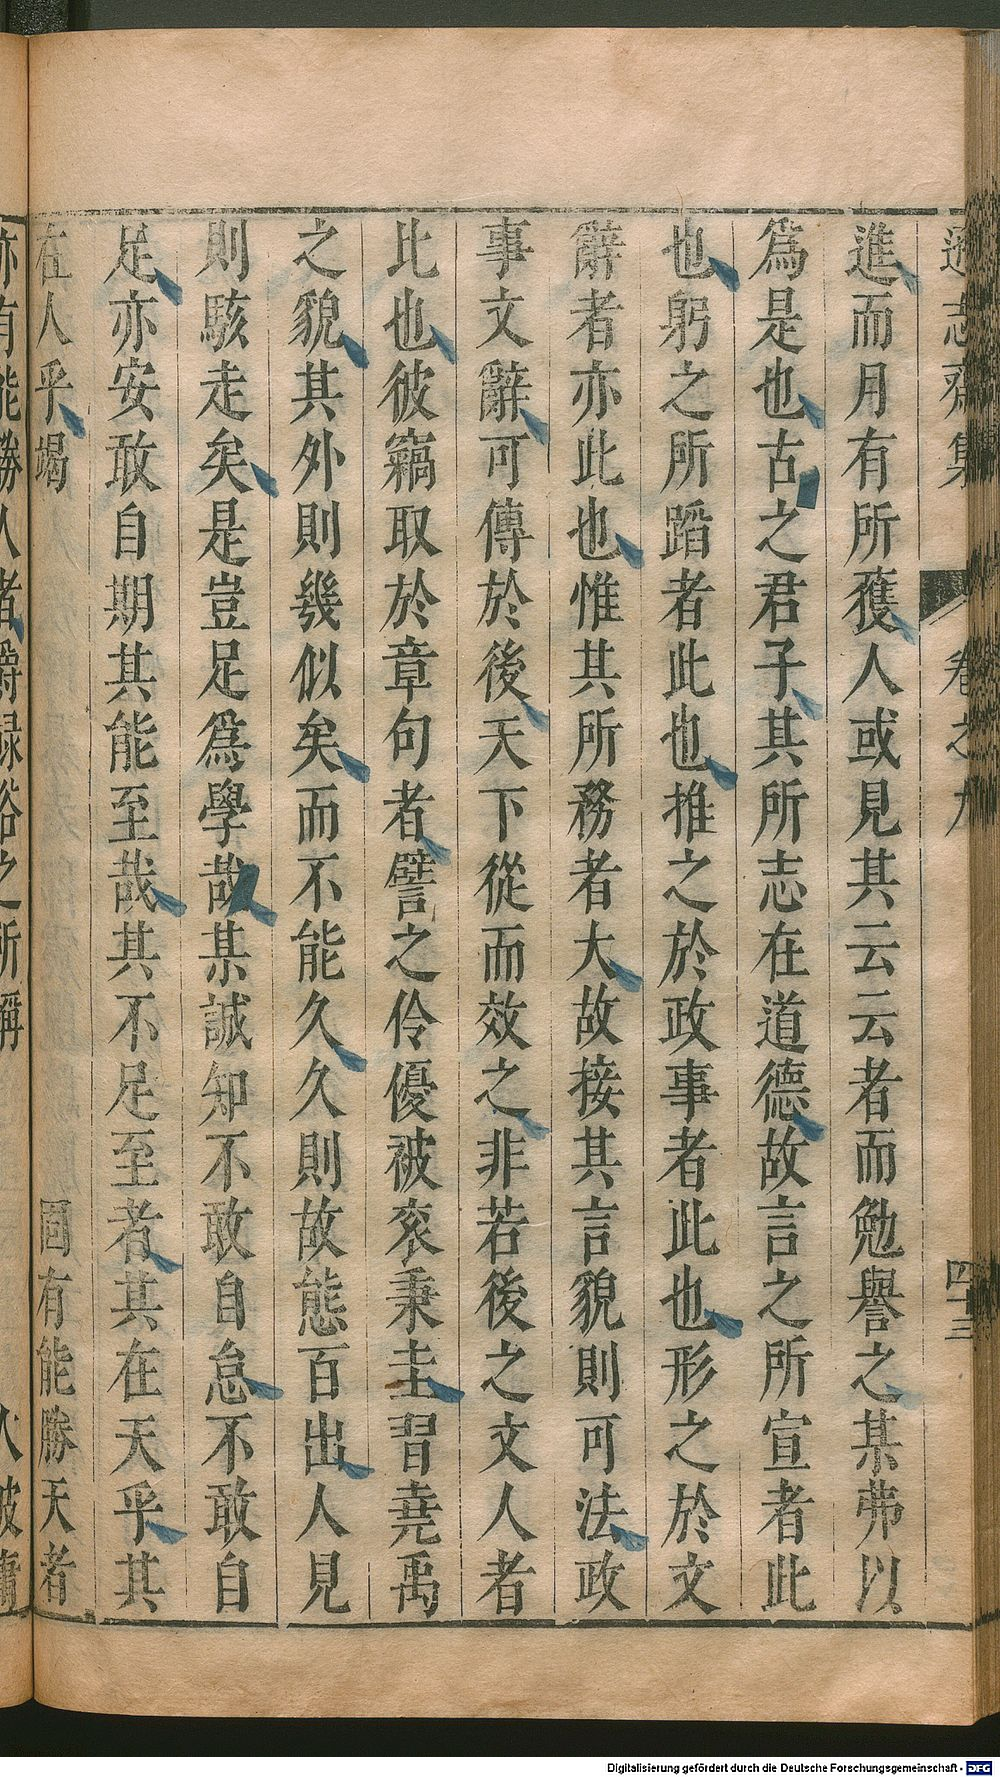 遜志齋集　卷之九　四十三
進而月有所獲人或見其云云者而勉譽之某弗以
爲是也古之君子其所志在道德故言之所宣者此
也躬之所蹈者此也推之於政事者此也形之於文
辭者亦此也惟其所務者大故接其言貌則可法政
事文辭可傳於後天下從而效之非若後之文人者
比也彼竊取於章句者譬之伶優被衮秉圭習堯禹
之貌其外則幾似矣而不能久久則故態百出人見
則駭走矣是豈足爲學哉某誠知不敢自怠不敢自
足亦安敢自期其能至哉其不足至者其在天乎其
在人乎竭　固有能勝天者
亦有能勝人者爵祿俗之所稱　人被庸
Digitalisierung gefördert durch die Deutsche Forschungsgemeinschaft - DFG